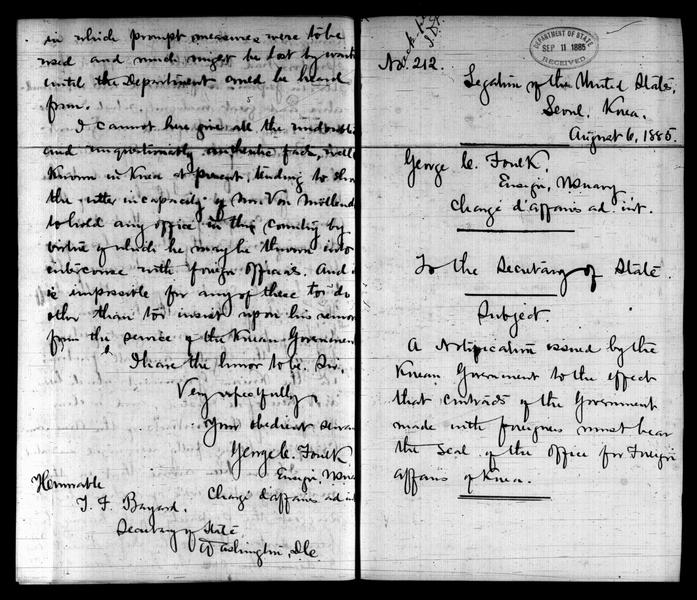 in which prompt measures were to be
used and much might be lost by
until the Department could be heard
from.
I cannot here give all the
and unquestionably authentic facts, well
known in Korea at present, tending to
the utter incapacity of Mr. Von
to hold any office in this Country by
virtue of which he may be thrown into
intercourse with foreign officers. And
is impossible for any of these to do
other than to insist upon his
from the service of the Korean Government
I have the honor to be, Sir,
Very respectfully,
Your obedient
George C. Foulk
Ensign,
Chargé d'affaires ad
Honorable
T. F. Bayard.
Secretary of State
Washington, D.C.
DEPARTMENT OF STATE
SEP 11 1885
RECEIVED
No. 212.
Legation of the United States,
Seoul, Korea.
August 6, 1885.
George C. Foulk,
Ensign, U.S. Navy
Chargé d'affaires ad. int.
To the Secretary of State.
Subject.
A Notification issued by the
Korean Government to the effect
that contracts of the Government
made with foreigners must bear
the Seal of the Office for Foreign
Affairs of Korea.